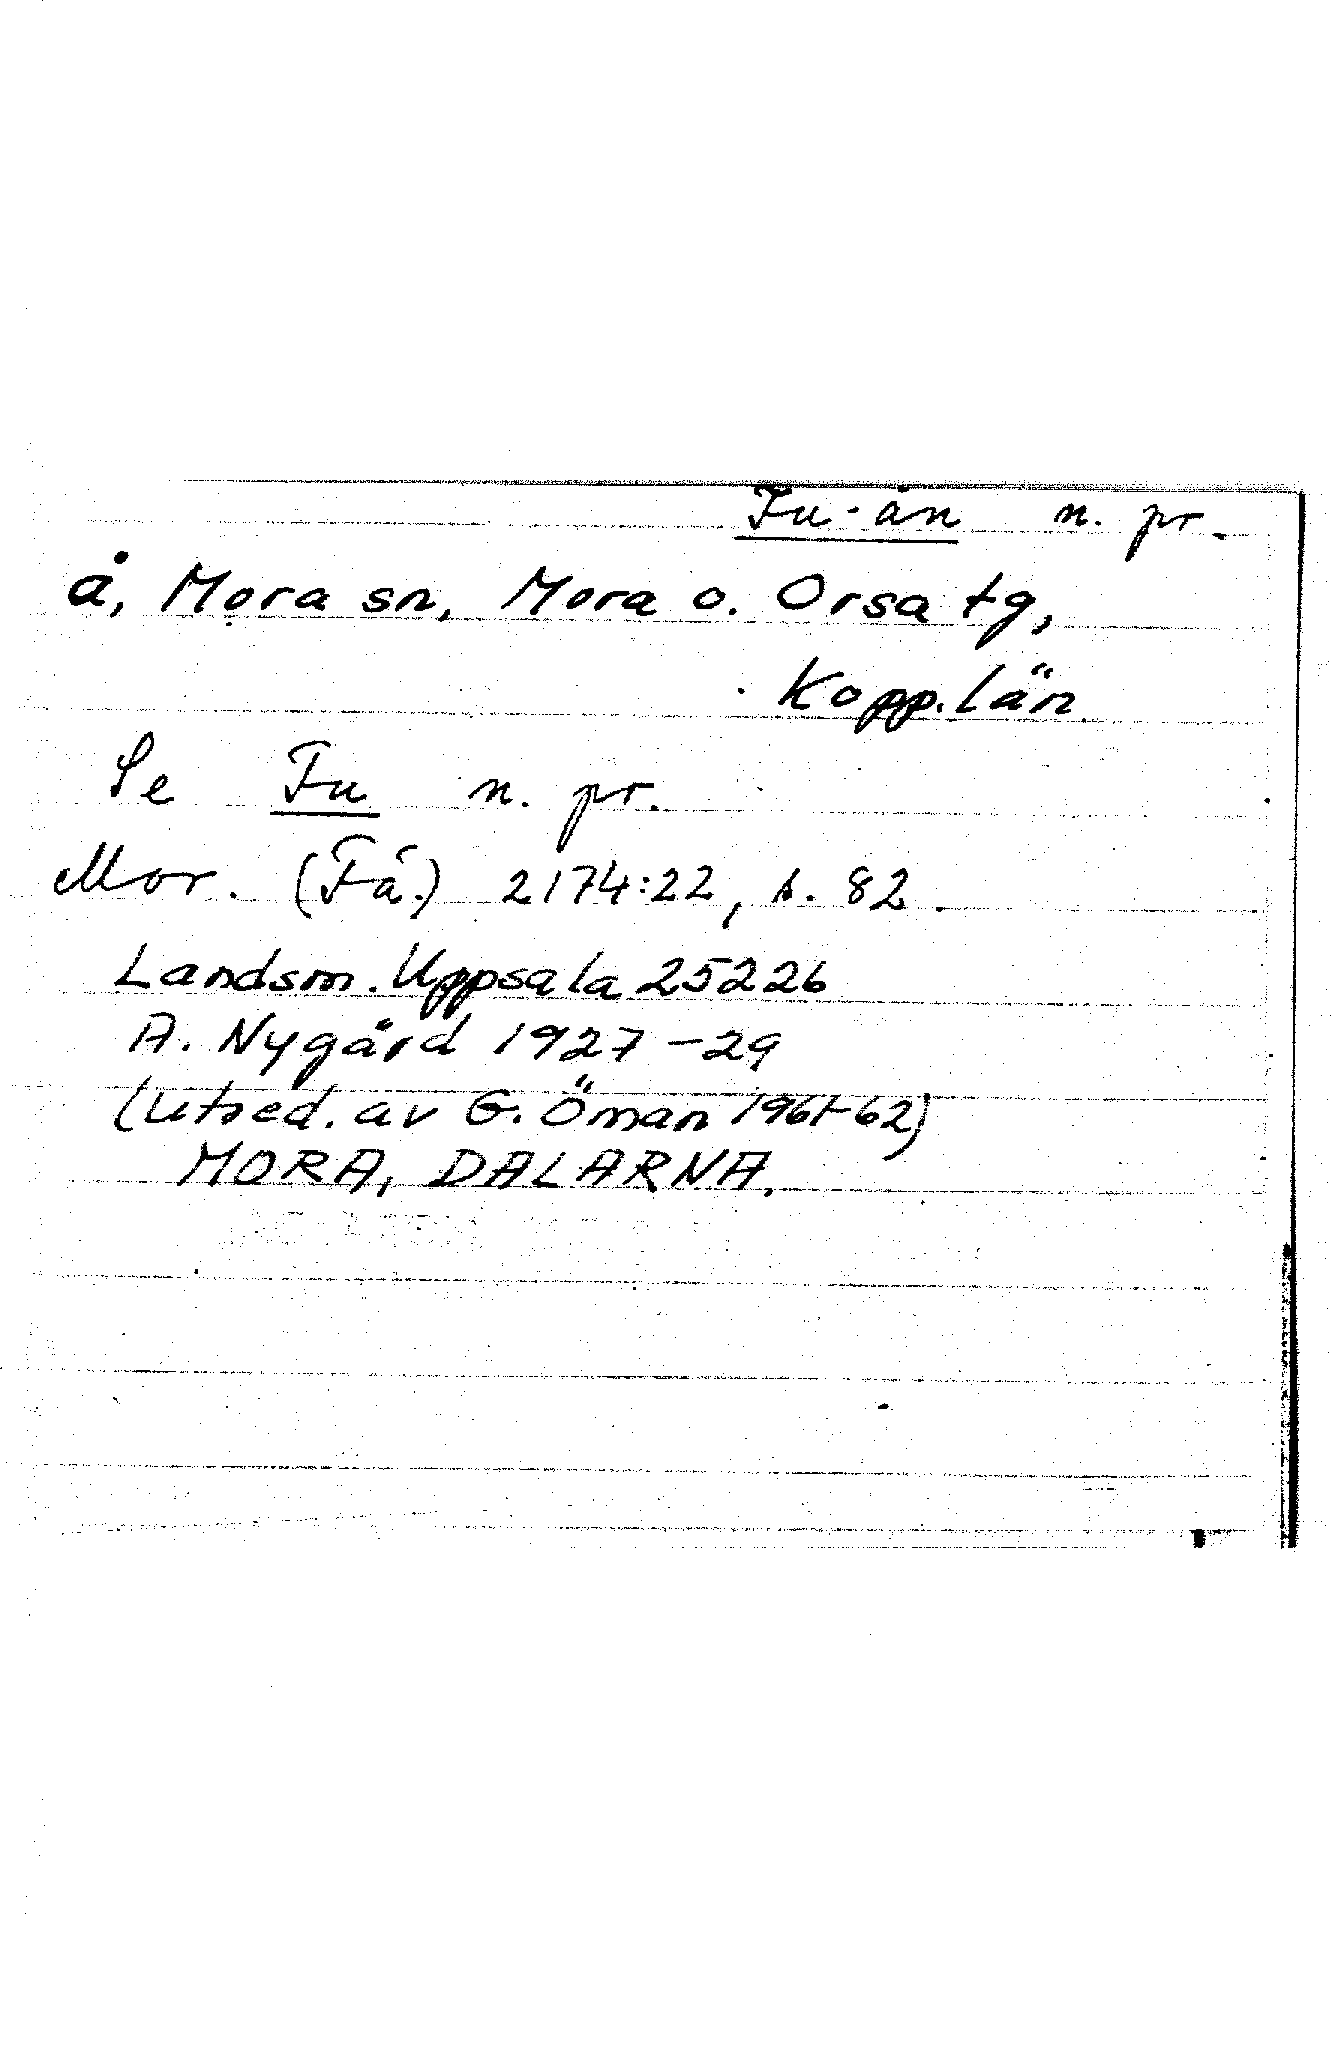 Fu-ån n. pr.
å, Mora sn, Mora o. Orsa tg,
Kopp. län
Se Fu n. pr.
Mor. (Få.) 2174:22, s. 82.
Landsm. Uppsala 25226
A. Nygård 1927-29
(utred. av G. Öman 1961-62)
MORA, DALARNA.